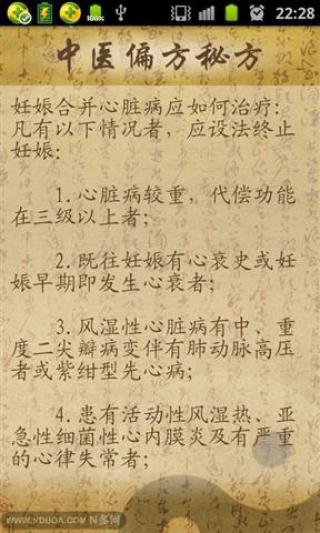 22:28
中医偏方秘方
妊娠合并心脏病应如何治疗:
凡有以下情况者，应设法终止
妊娠:
1.心脏病较重，代偿功能
在三级以上者;
2.既往妊娠有心衰史或妊
娠早期即发生心衰者;
3.风湿性心脏病有中、重
度二尖瓣病变伴有肺动脉高压
者或紫绀型先心病;
4.患有活动性风湿热、亚
急性细菌性心内膜炎及有严重
的心律失常者;
www.nduoa.com N多网